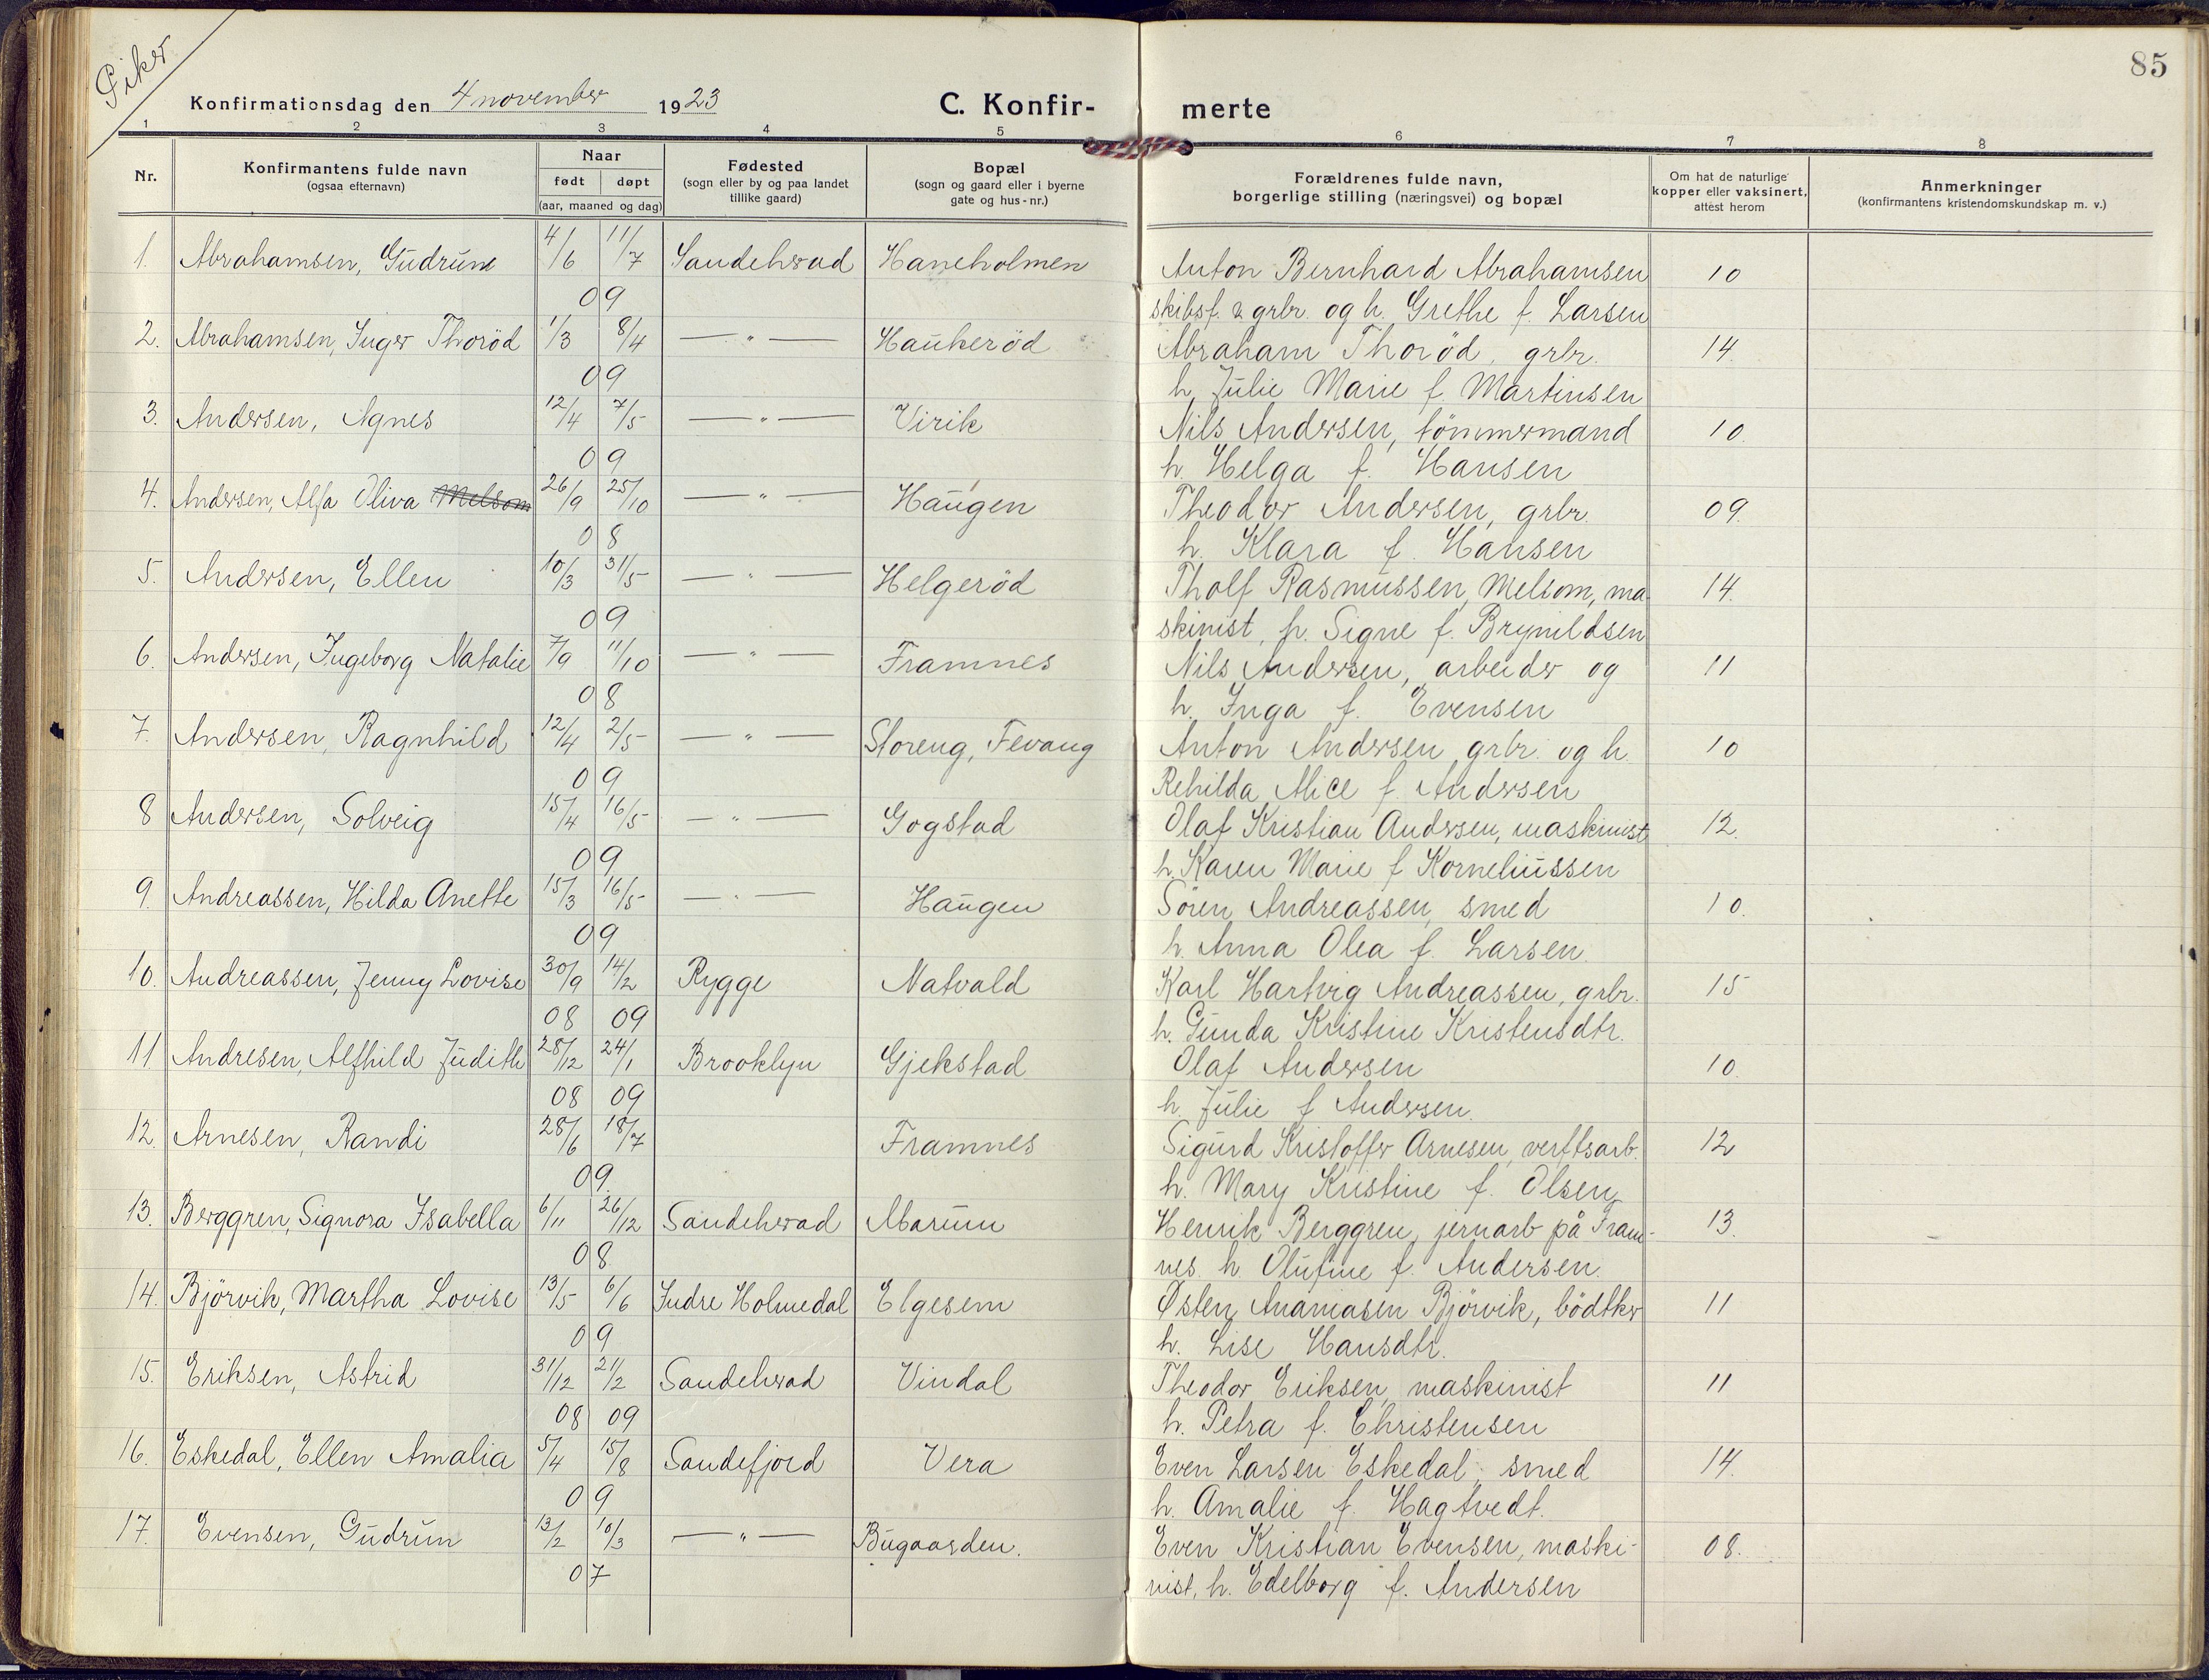 Piker
85
Konfirmationsdag den 4 november 1923
C. Konfir-
merte
1 2 3 4 5 6 7 8
Nr.
Konfirmantens fulde navn
(ogsaa efternavn)
Naar
født døpt
(aar, maaned og dag)
Fødested
(sogn eller by og paa landet
tillike gaard)
Bopæl
(sogn og gaard eller i byerne
gate og hus-nr.)
Forældrenes fulde navn,
borgerlige stilling (næringsvei) og bopæl
Om hat de naturlige
kopper eller vaksinert,
attest herom
Anmerkninger
(konfirmantens kristendomskundskap m. v.)
1. Abrahamsen, Gudrun 4/6 11/7 Sandeherad Haneholmen Anton Bernhard Abrahamsen 10
09 skibsf. & grbr. og h. Grethe f. Larsen
2. Abrahamsen, Inger Thorød 1/3 8/4 — " — Haukerød Abraham Thorød, grbr. 14
09 h. Julie Marie f. Martinsen
3. Andersen, Agnes 12/4 7/5 — " — Virik Nils Andersen, tömmermand 10
09 h. Helga f. Hansen
4. Andersen, Alfa Oliva Melsom 26/9 25/10 — " — Haugen Theodor Andersen, grbr. 09.
08 h. Klara f. Hansen
5. Andersen, Ellen 10/3 31/5 — " — Helgeröd Tholf Rasmussen, Melsom, ma 14.
09 skinist, h. Signe f. Brynildsen
6. Andersen, Ingeborg Natalie 7/9 11/10 — " — Framnes Nils Andersen, arbeider og 11
08 h. Inga f. Evensen
7. Andersen, Ragnhild 12/4 2/5 — " — Storeng, Fevang Anton Andersen grbr. og h. 10
09 Rehilda Alice f. Andersen
8 Andersen, Solveig 15/4 16/5 — " — Gogstad Olaf Kristian Andersen, maskinist 12.
09 h. Karen Marie f Korneliussen
9. Andreassen, Hilda Anette 15/3 16/5 — " — Haugen Sören Andreassen, smed 10.
09 h. Anna Olea f. Larsen.
10. Andreassen, Jenny Lovise 30/9 14/2 Rygge Natvald Karl Hartvig Andreassen, grbr. 15
08 09 h. Gunda Kristine Kristensdtr.
11 Andresen, Alfhild Judith 28/12 24/1 Brooklyn Gjekstad Olaf Andersen 10.
08 09 h. Julie f Andersen.
12. Arnesen, Randi 28/6 18/7 Framnes Sigurd Kristoffer Arnesen, verftsarb. 12
09. h. Mary Kristine f. Olsen
13. Berggren, Signora Isabella 6/11 26/12 Sandeherad Marum Henrik Berggren, jernarb på Fram- 13.
08. nes. h. Olufine f. Andersen.
14. Björvik, Martha Lovise 13/5 6/6 Indre Holmedal Elgesem Østen Ananiasen Björvik, bödtker 11
09 h. Lise Hansdtr.
15. Eriksen, Astrid 31/12 21/2 Sandeherad Vindal Theodor Eriksen, maskinist 11
08 09 h. Petra f. Christensen
16. Eskedal, Ellen Amalia 5/4 15/8 Sandefjord Vera Even Larsen Eskedal, smed 14.
09 h. Amalie f. Hagtvedt.
17. Evensen, Gudrun 13/2 10/3 — " — Bugaarden. Even Kristian Evensen, maski- 08.
07 nist, h. Edelborg f. Andersen